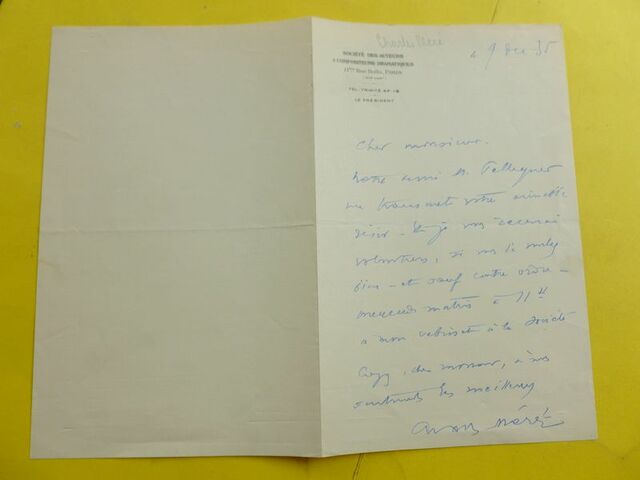 Charles Méré
SOCIÉTÉ DES AUTEURS
& COMPOSITEURS DRAMATIQUES
Rue Ballu, PARIS
TÉL. TRINITÉ
LE PRÉSIDENT
9 Dec - 35
Cher monsieur.
notre ami M.
me transmet votre aimable
désir - Et je vous recevrai
volontiers, si vous le voulez
bien - et sauf contre ordre -
mercredi matin à 11 H
à mon cabinet à la société
Croyez, cher monsieur, à mes
sentiments les meilleurs
Charles Méré